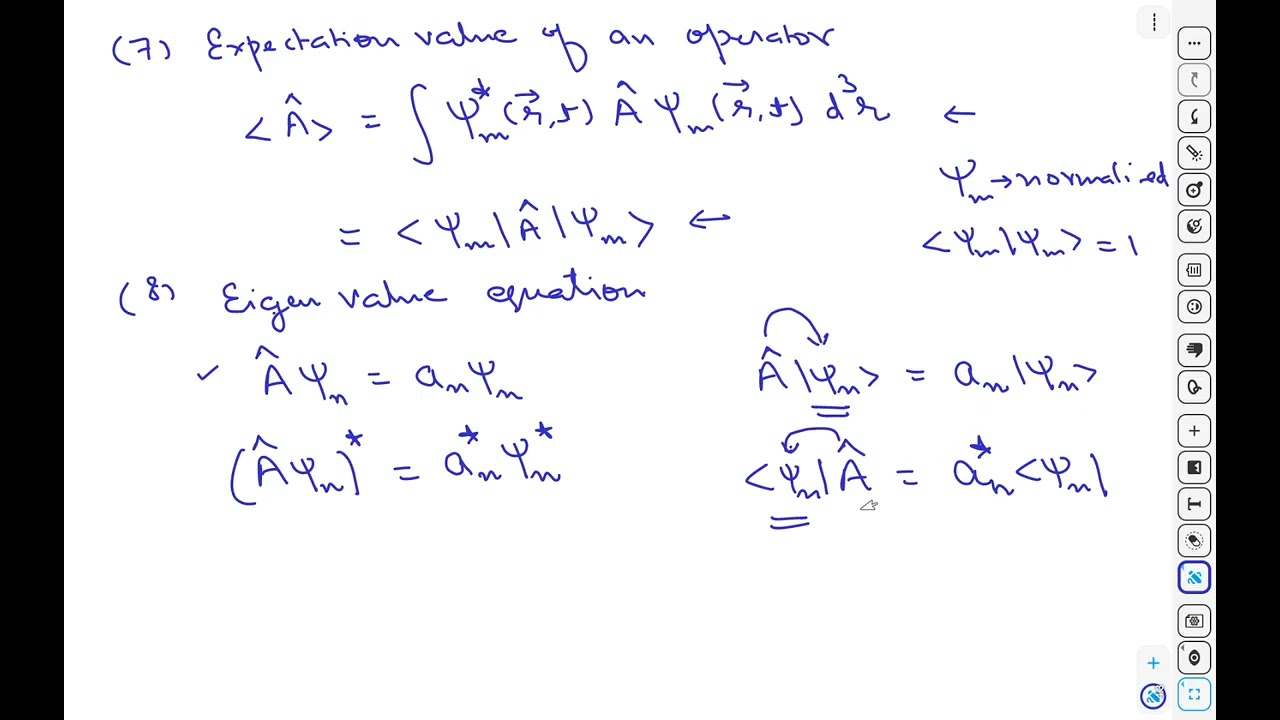 (7) Expectation value of an operator
<Â> = ∫ Ψ*ₘ(r⃗,t) Â Ψₘ(r⃗,t) d³r ←
Ψₘ → normalized
= <Ψₘ|Â|Ψₘ> ←
<Ψₘ|Ψₘ> = 1
(8) Eigen value equation
✓ ÂΨₙ = aₙΨₙ
Â|Ψₙ> = aₙ|Ψₙ>
(ÂΨₙ)* = a*ₙΨ*ₙ
<Ψₙ|Â = a*ₙ<Ψₙ|